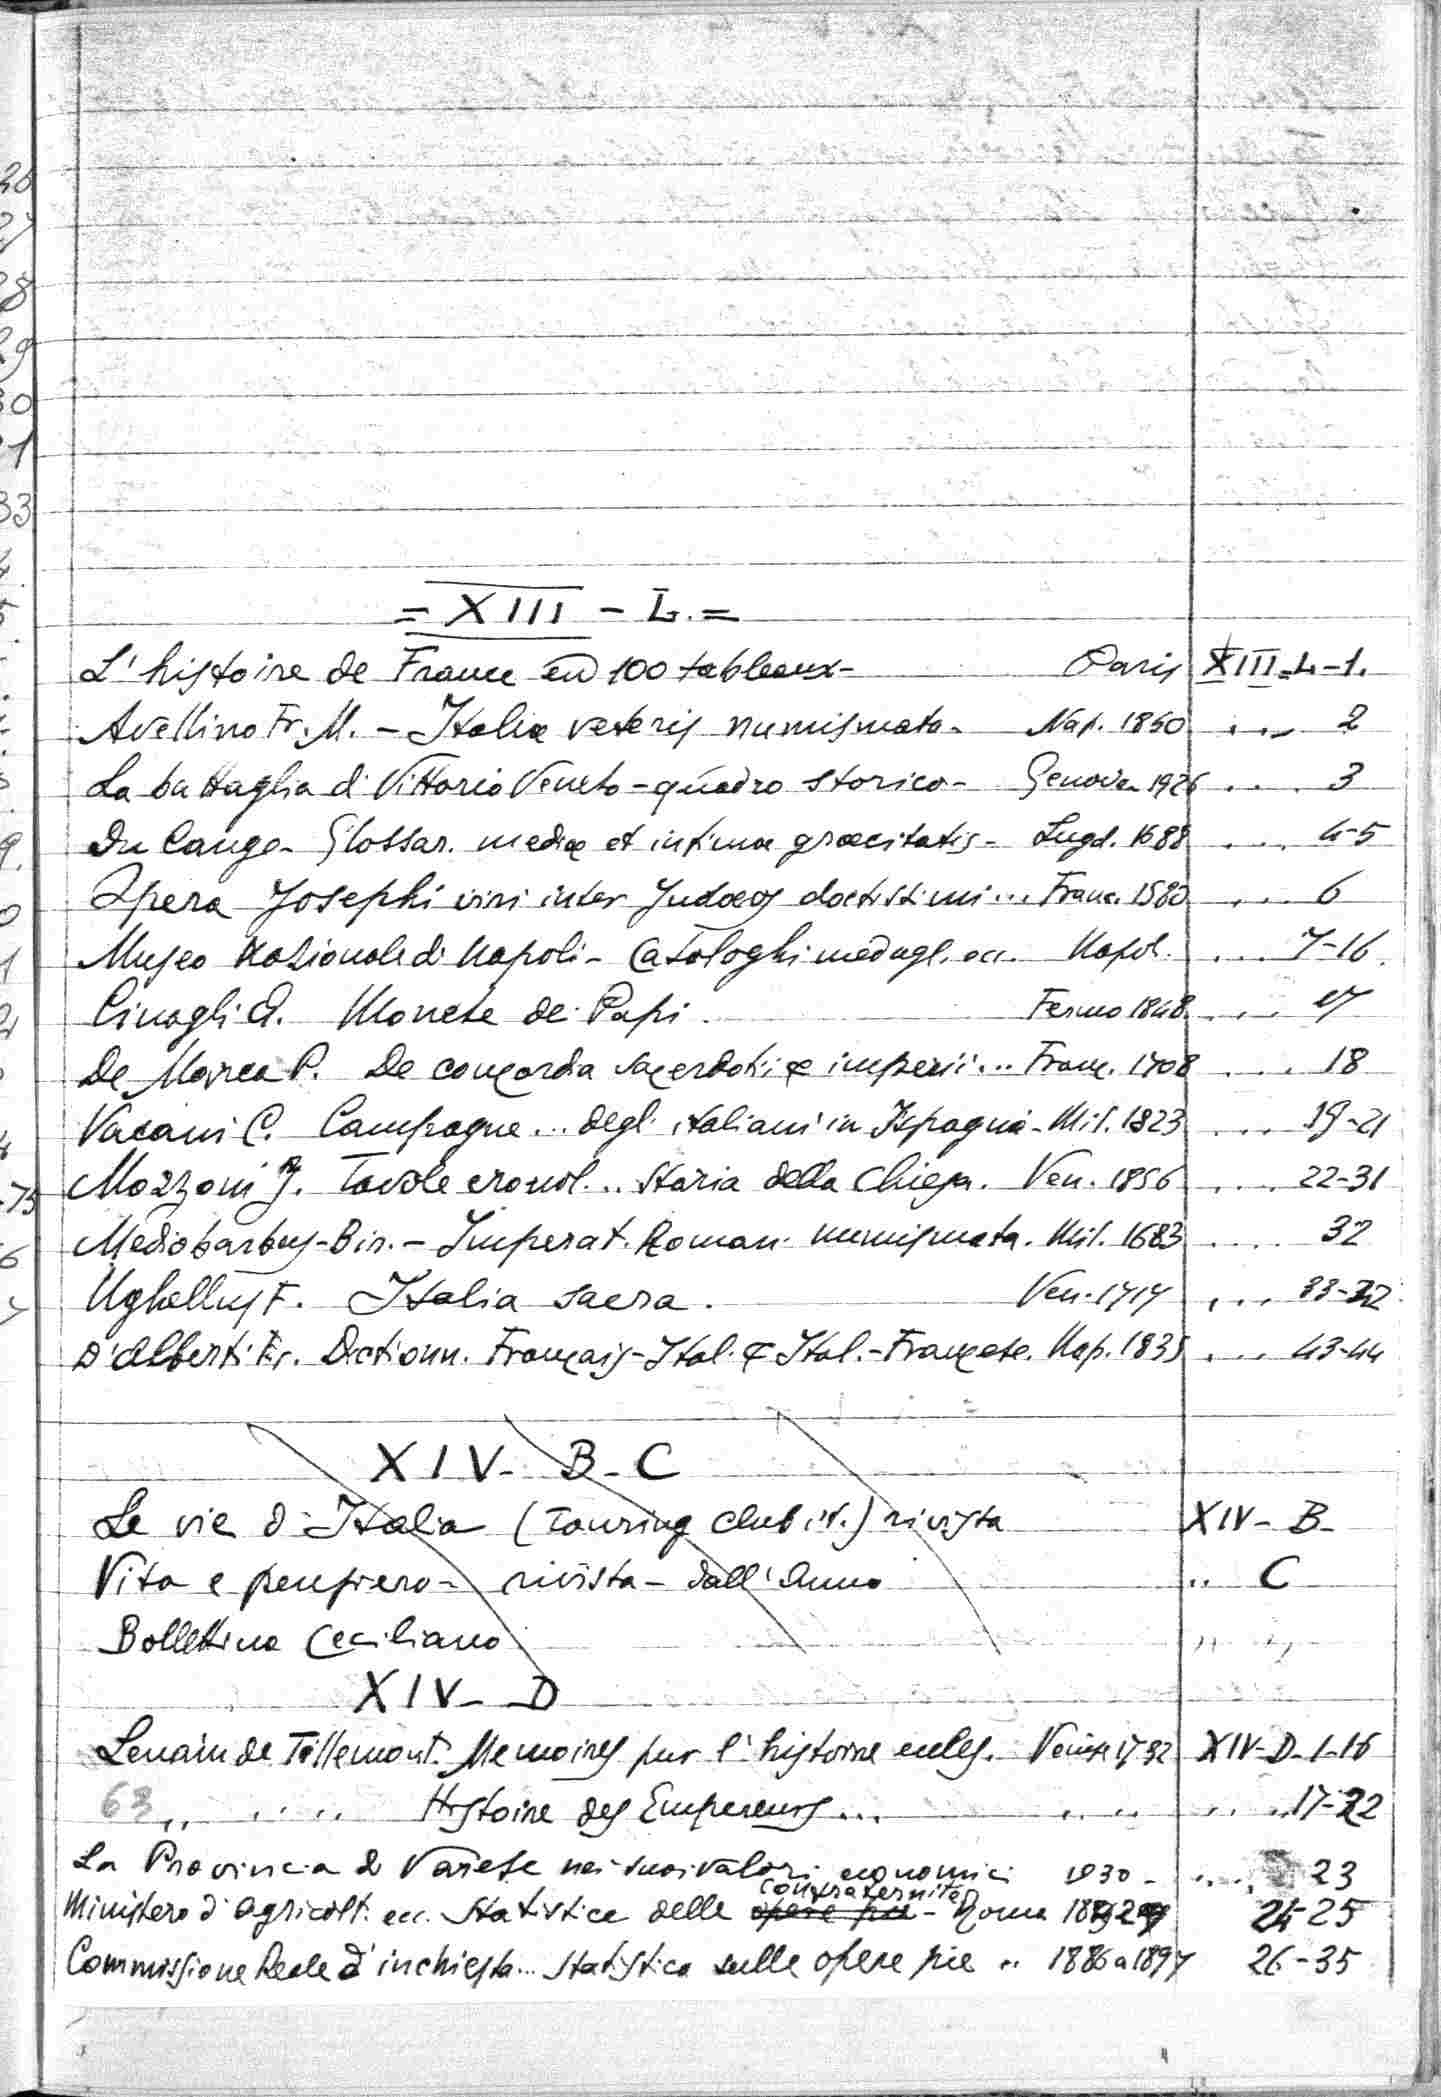 = XIII - L. =
L'histoire de France en 100 tableaux - Paris XIII-L-1.
Avellino Fr. M. - Italiæ veteris numismata - Nap. 1850 .... 2
La battaglia di Vittorio Veneto - quadro storico - Genova 1926 .... 3
Du Cange - Glossar. mediæ et infimæ græcitatis - Lugd. 1688 .... 4-5
Opera Josephi viri inter Judæos doctissimi ... Franc. 1580 .... 6
Museo Nazionale di Napoli - Cataloghi medagl. ecc. Napol. .... 7-16.
Cinagli A. Monete dei Papi. Fermo 1848 .... 17
De Marca P. De concordia sacerdotii & imperii ... Franc. 1708 .... 18
Vacani C. Campagne ... degl' italiani in Ispagna - Mil. 1823 .... 19-21
Mozzoni J. Tavole cronol. .. storia della Chiesa. Ven. 1856 .... 22-31
Mediobarbus - Bir. - Imperat. Roman. numismata. Mil. 1683 .... 32
Ughellus F. Italia sacra. Ven. 1717 .... 33-42
D'Alberti Fr. Dictionn. Français-Ital. & Ital.-Francese. Nap. 1835 .... 43-44
XIV - B - C
Le vie d'Italia (Touring Club it.) rivista XIV - B -
Vita e pensiero - rivista - dall'Anno .. C
Bollettino Ceciliano " "
XIV - D
Lenain de Tillemont. Memoires pur l'histoire eccles. Venise 1732 XIV-D-1-16
63 " .... Histoire des Empereurs ... .. .. .... 17-22
La Provincia di Varese nei suoi valori economici 1930 - .... 23
confraternite
Ministero d'Agricolt. ecc. Statistica delle opere pie - Roma 24-25
Commissione Reale d'inchiesta ... Statistica sulle opere pie .. 1886 a 1897 26-35